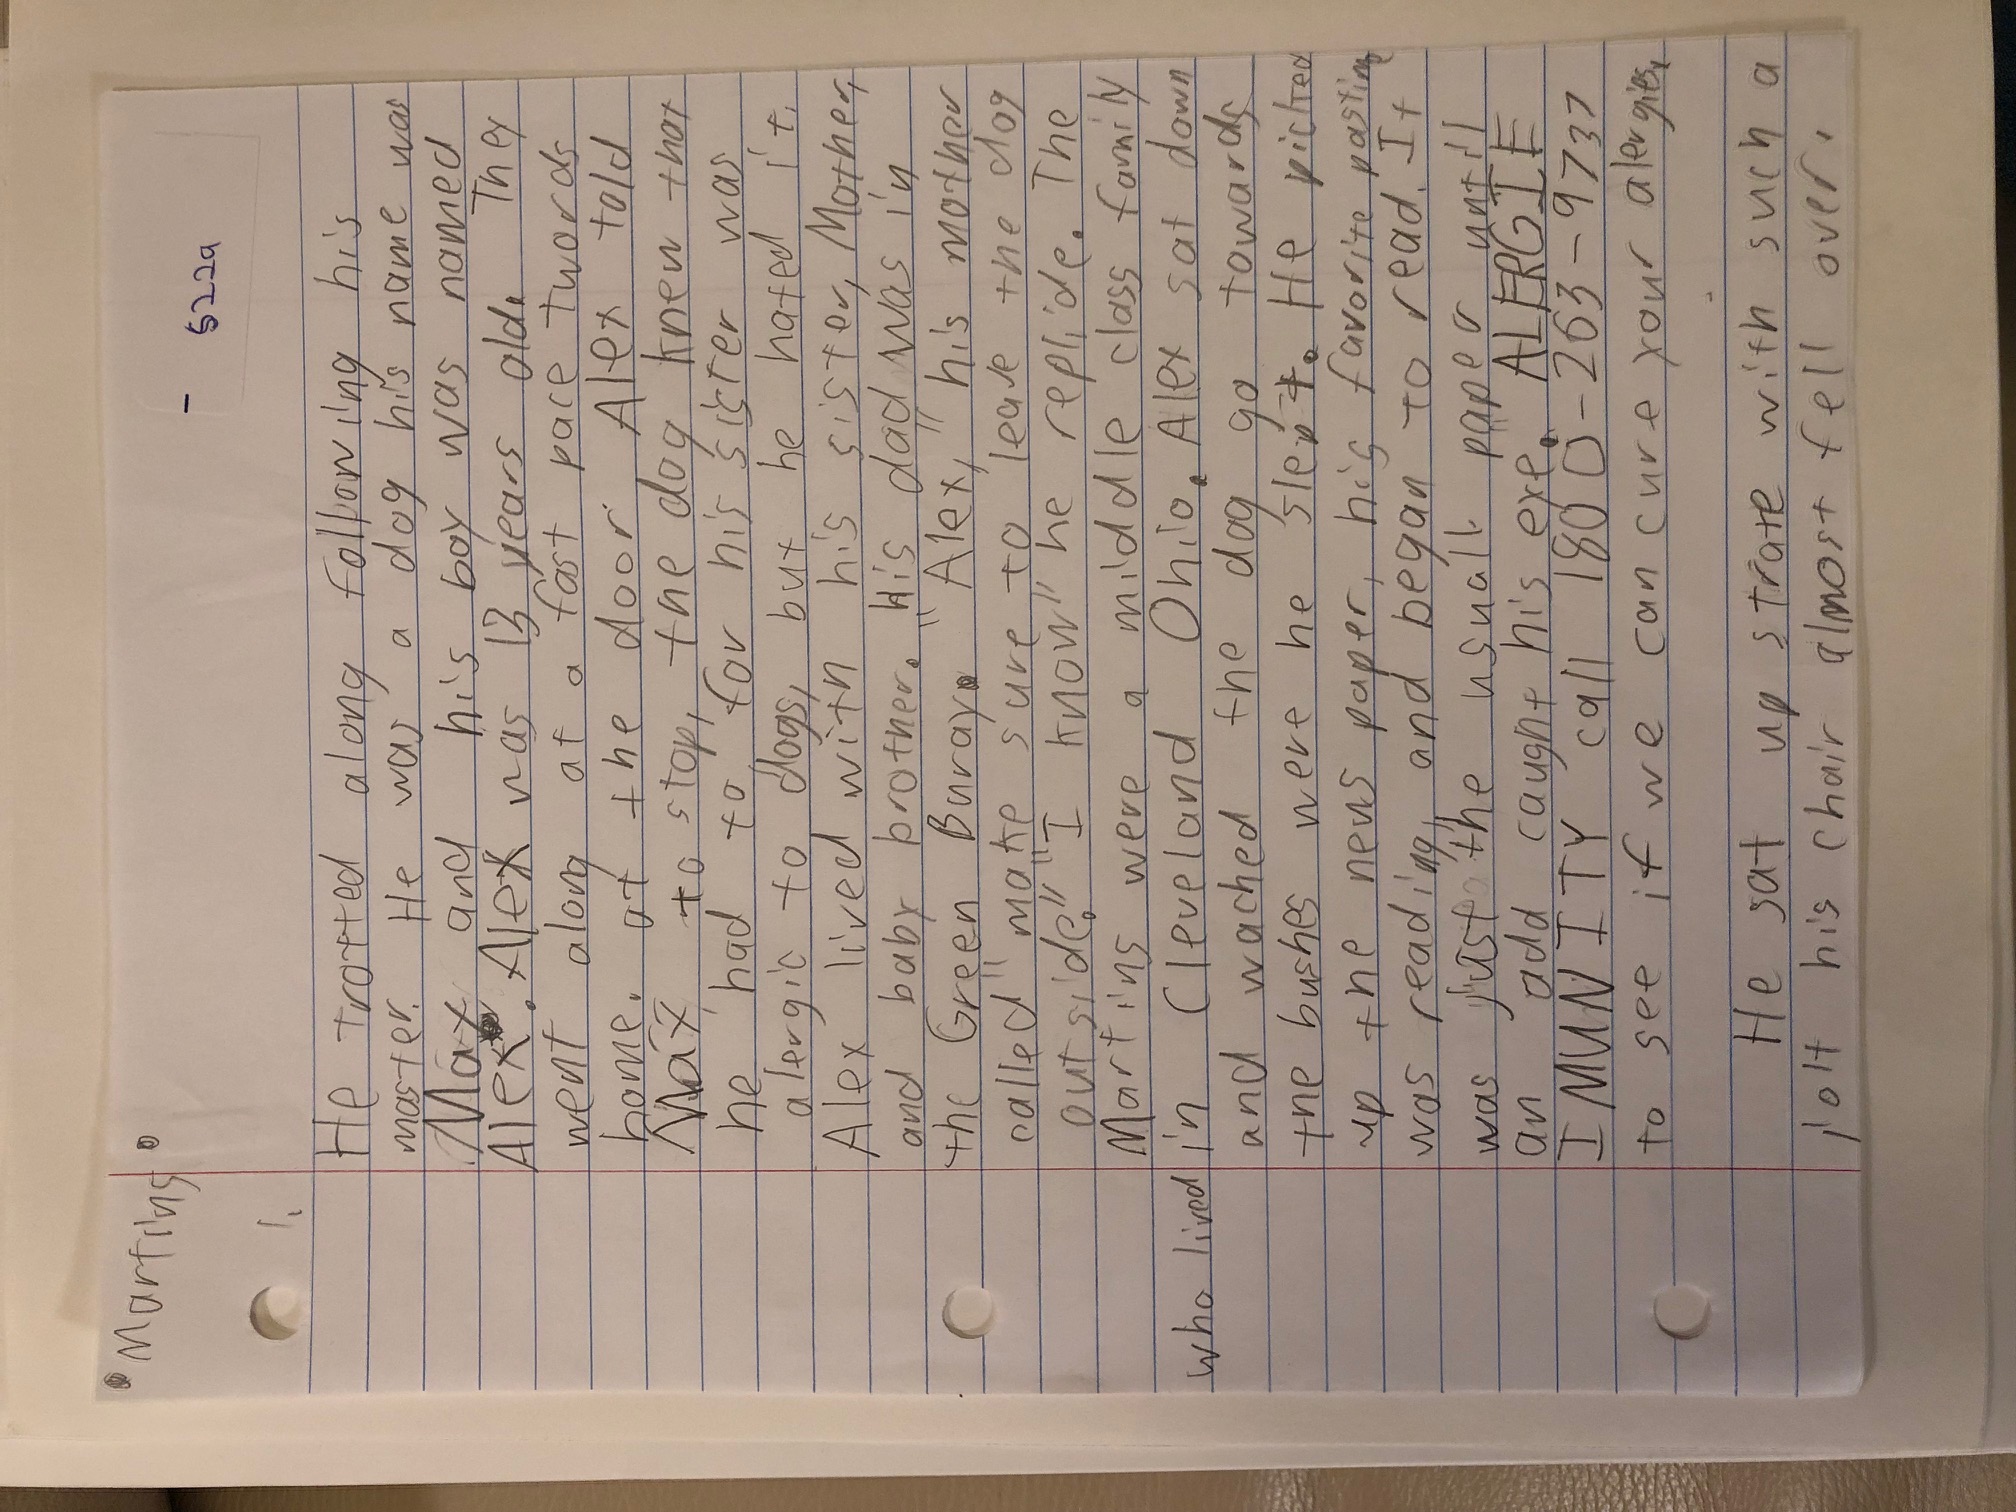 Martins
522a
1.
He trotted along following his
master. He was a dog his name was
Max and his boy was named
Alex. Alex was 13 years old. They
went along at a fast pace twords
home. at the door Alex told
Max to stop, the dog knew that
he had to, for his sister was
alergic to dogs, but he hated it.
Alex lived with his sister, Mother,
and baby brother. His dad was in
the Green Buray. "Alex," his mother
called "make sure to leave the dog
outside." "I know" he replide. The
Martins were a middle class family
who lived in Cleveland Ohio. Alex sat down
and wached the dog go towards
the bushes were he slept. He picked
up the news paper, his favorite pastime
was reading, and began to read. It
was just the usuall paper untill
an add caught his eye. "ALERGIE
IMUNITY call 1800-263-9737
to see if we can cure your alergies.
He sat up strate with such a
jolt his chair almost fell over.